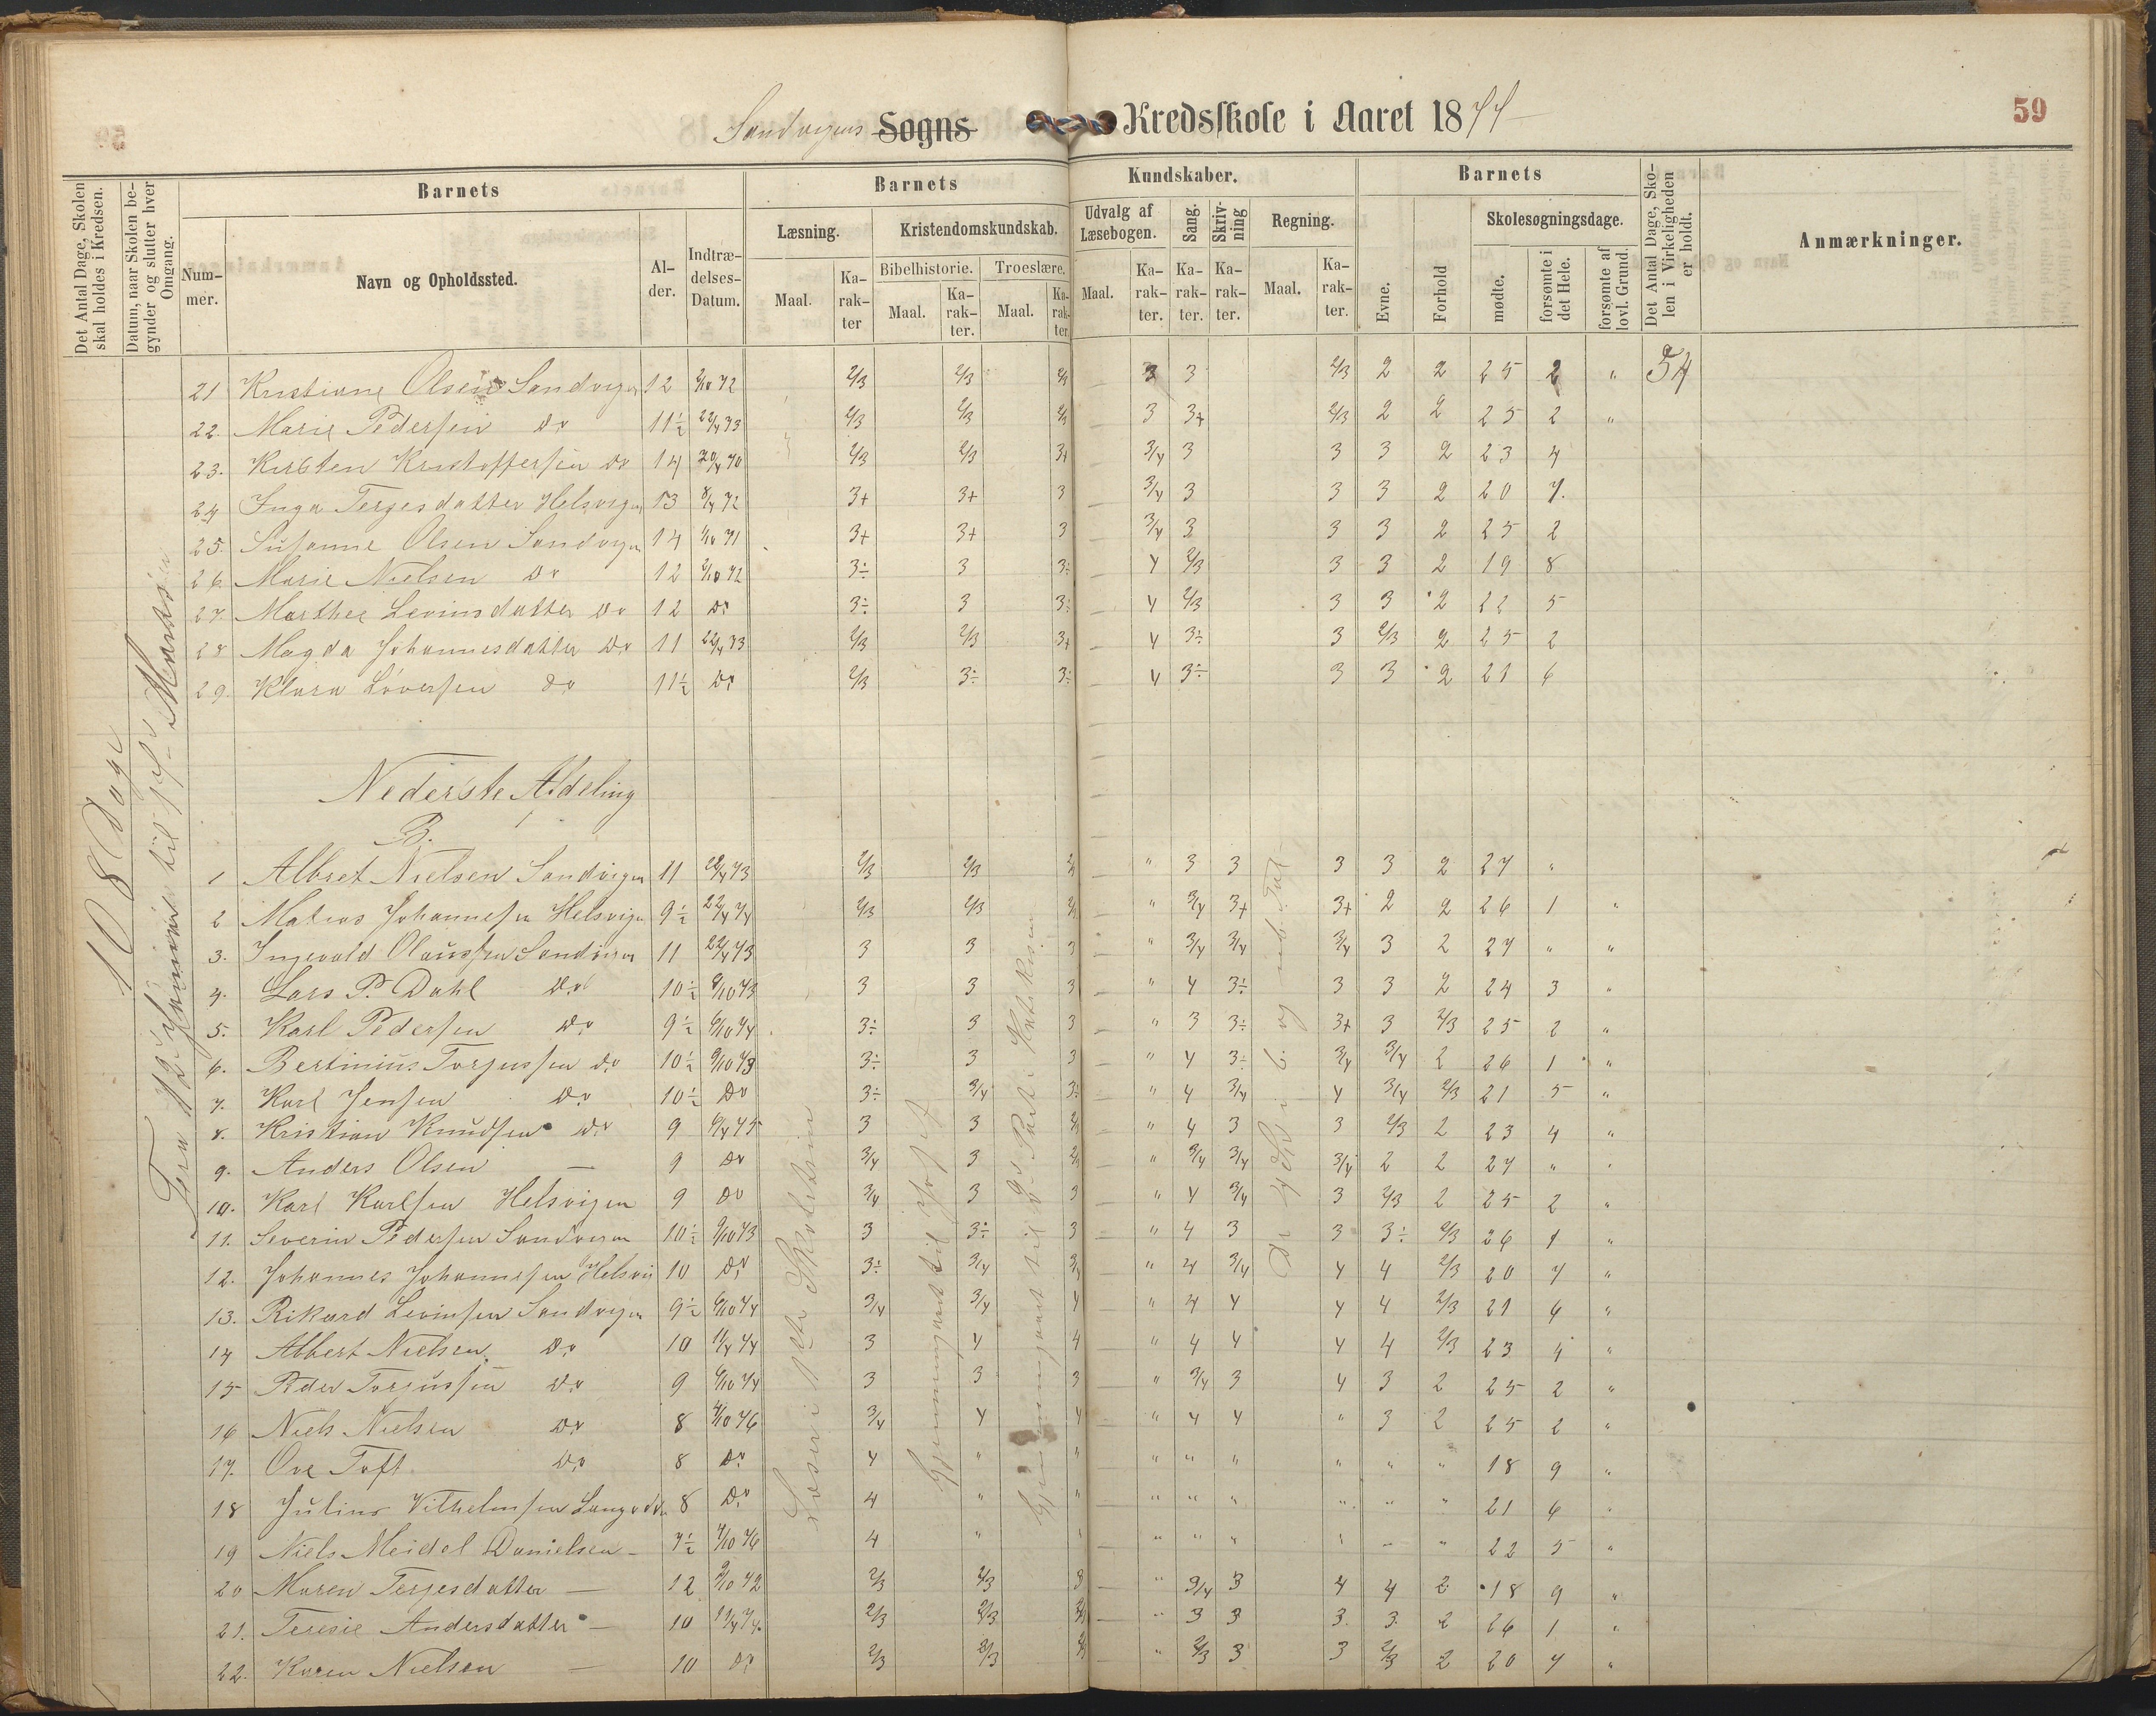 Sandvigens Sogns Kredsskole i Aaret 1877
59
Det Antal Dage, Skolen skal holdes i Kredsen.
Datum, naar Skolen begynder og slutter hver Omgang.
Barnets
Nummer.
Navn og Opholdssted.
Alder.
Indtrædelses-Datum.
Barnets Kundskaber.
Læsning.
Maal.
Karakter
Kristendomskundskab.
Bibelhistorie.
Maal.
Karakter.
Troeslære.
Maal.
Karakter.
Udvalg af Læsebogen.
Maal.
Karakter.
Sang.
Karakter.
Skrivning
Karakter.
Regning.
Maal.
Karakter.
Barnets
Evne.
Forhold
Skolesøgningsdage.
mødte.
forsømte i det Hele.
forsømte af lovl. Grund.
Det Antal Dage, Skolen i Virkeligheden er holdt.
Anmærkninger.
108 Dage
21 Kristiane Olsen Sandvigen 12 2/10 72 2/3 2/3 2/3 3 3 2/3 2 2 25 2 " 54
22. Marie Pedersen Do 11½ 22/4 73 2/3 2/3 2/3 3 3+ 2/3 2 2 25 2 "
23. Kirsten Kristoffersen Do 14 20/4 70 2/3 2/3 3+ 3/4 3 3 3 2 23 4
24 Inga Terjesdatter Helsvigen 13 8/4 72 3+ 3+ 3 3/4 3 3 3 2 20 7.
25. Susanne Olsen Sandvigen 14 1/10 71 3+ 3+ 3 3/4 3 3 3 2 25 2
26. Marie Nielsen Do 12 2/10 72 3÷ 3 3÷ 4 2/3 3 3 2 19 8
27. Marthee Levinsdatter Do 12 Do 3÷ 3 3÷ 4 2/3 3 3 2 22 5
28 Magda Johannesdatter Do 11 22/4 73 2/3 2/3 3+ 4 3÷ 3 2/3 2 25 2
29. Klara Löversen Do 11½ Do 2/3 3÷ 3÷ 4 3÷ 3 3 2 21 6
Nederste Afdeling
B.
1 Albret Nielsen Sandvigen 11 22/4 73 2/3 2/3 " 3 3 3 3 2 27 "
2 Matias Johannesen Helsvigen 9½ 22/4 74 2/3 2/3 2/3 " 3/4 3+ 3+ 2 2 26 1 "
3. Ingevald Olaussen Sandvigen 11 22/4 73 3 3 3 " 3/4 3/4 3/4 3 2 27 " "
4. Lars P. Dahl Do 10½ 9/10 73 3 3 3 " 4 3÷ 3 3 2 24 3 "
5. Karl Pedersen Do 9½ 6/10 74 3÷ 3 3 " 3 3÷ 3+ 3 2/3 25 2 "
6. Bertinius Torjussen Do 10½ 9/10 73 3÷ 3 3 " 4 3÷ 3/4 3/4 2 26 1 "
7. Karl Jensen Do 10½ Do 3÷ 3/4 3÷ " 4 3/4 4 3/4 2/3 21 5 "
8. Kristian Knudsen Do 9 6/4 75 3 3 " 4 3 3 2/3 2 23 4 "
9. Anders Olsen — 9 Do 3/4 3 " 3/4 3/4 3/4 2 2 27 " "
10. Karl Karlsen Helsvigen 9 Do 3/4 3 3 " 4 3/4 3 2/3 2 25 2 "
11. Severin Pedersen Sandvigen 10½ 9/10 73 3 3÷ 3 " 4 3 3 3÷ 2/3 26 1 "
12. Johannes Johannesen Helsvi 10 Do 3÷ 3/4 3/4 " 4 3/4 4 4 2/3 20 7 "
13. Rikard Levinsen Sandvigen 9½ 6/10 74 3/4 3/4 4 " 4 4 4 4 2/3 21 6 "
14 Albert Nielsen Do 10 11/4 74 3 4 4 " 4 4 4 4 2/3 23 4 "
15 Peder Torjussen Do 9 6/10 74 3 3 3 " 3/4 3 4 3 2 25 2 "
16 Niels Nielsen Do 8 4/10 76 3/4 4 4 " 4 4 " 3 2 25 2 "
17. Ove Toft Do 8 Do 4 " " " " " " " " 18 9 "
18 Julius Vilhelmsen 8 Do 4 " " " " " " " " 21 6 "
19 Niels Meidel Danielsen — 7½ 4/10 76 4 " " " " " " " " 22 5 "
20 Maren Terjesdatter — 12 2/10 72 2/3 2/3 3 " 3/4 3 4 4 2 18 9 "
21. Teresie Andersdatter — 10 11/4 74 2/3 2/3 " 3 3 3 3 2 26 1 "
22. Karen Nielsen — 10 Do 2/3 2/3 " 2/3 3 3 2/3 2 20 7 "